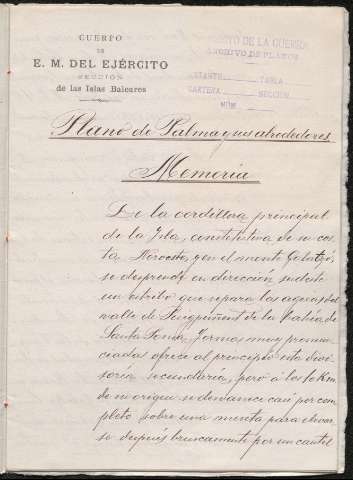 CUERPO
DE
E. M. DEL EJÉRCITO
SECCIÓN
de las Islas Baleares
DE LA GUERRA
ARCHIVO DE PLANOS
ESTANTE TABLA
CARTERA SECCION
NÚM
Plano de Palma y sus alrededores
Memoria
De la cordillera principal
de la Isla, constitutiva de su cos-
ta Noroeste, y en el monte Galatzó,
se desprende en dirección sudeste
un estribo que separa las aguas del
valle de Puigpuñent de la bahía de
Santa Ponsa. Formas muy pronun-
ciadas ofrece al principio esta divi-
soria secundaria, pero á los
de su origen se desvanece casi por com-
pleto sobre una meseta para elevar-
se después bruscamente por un cantil